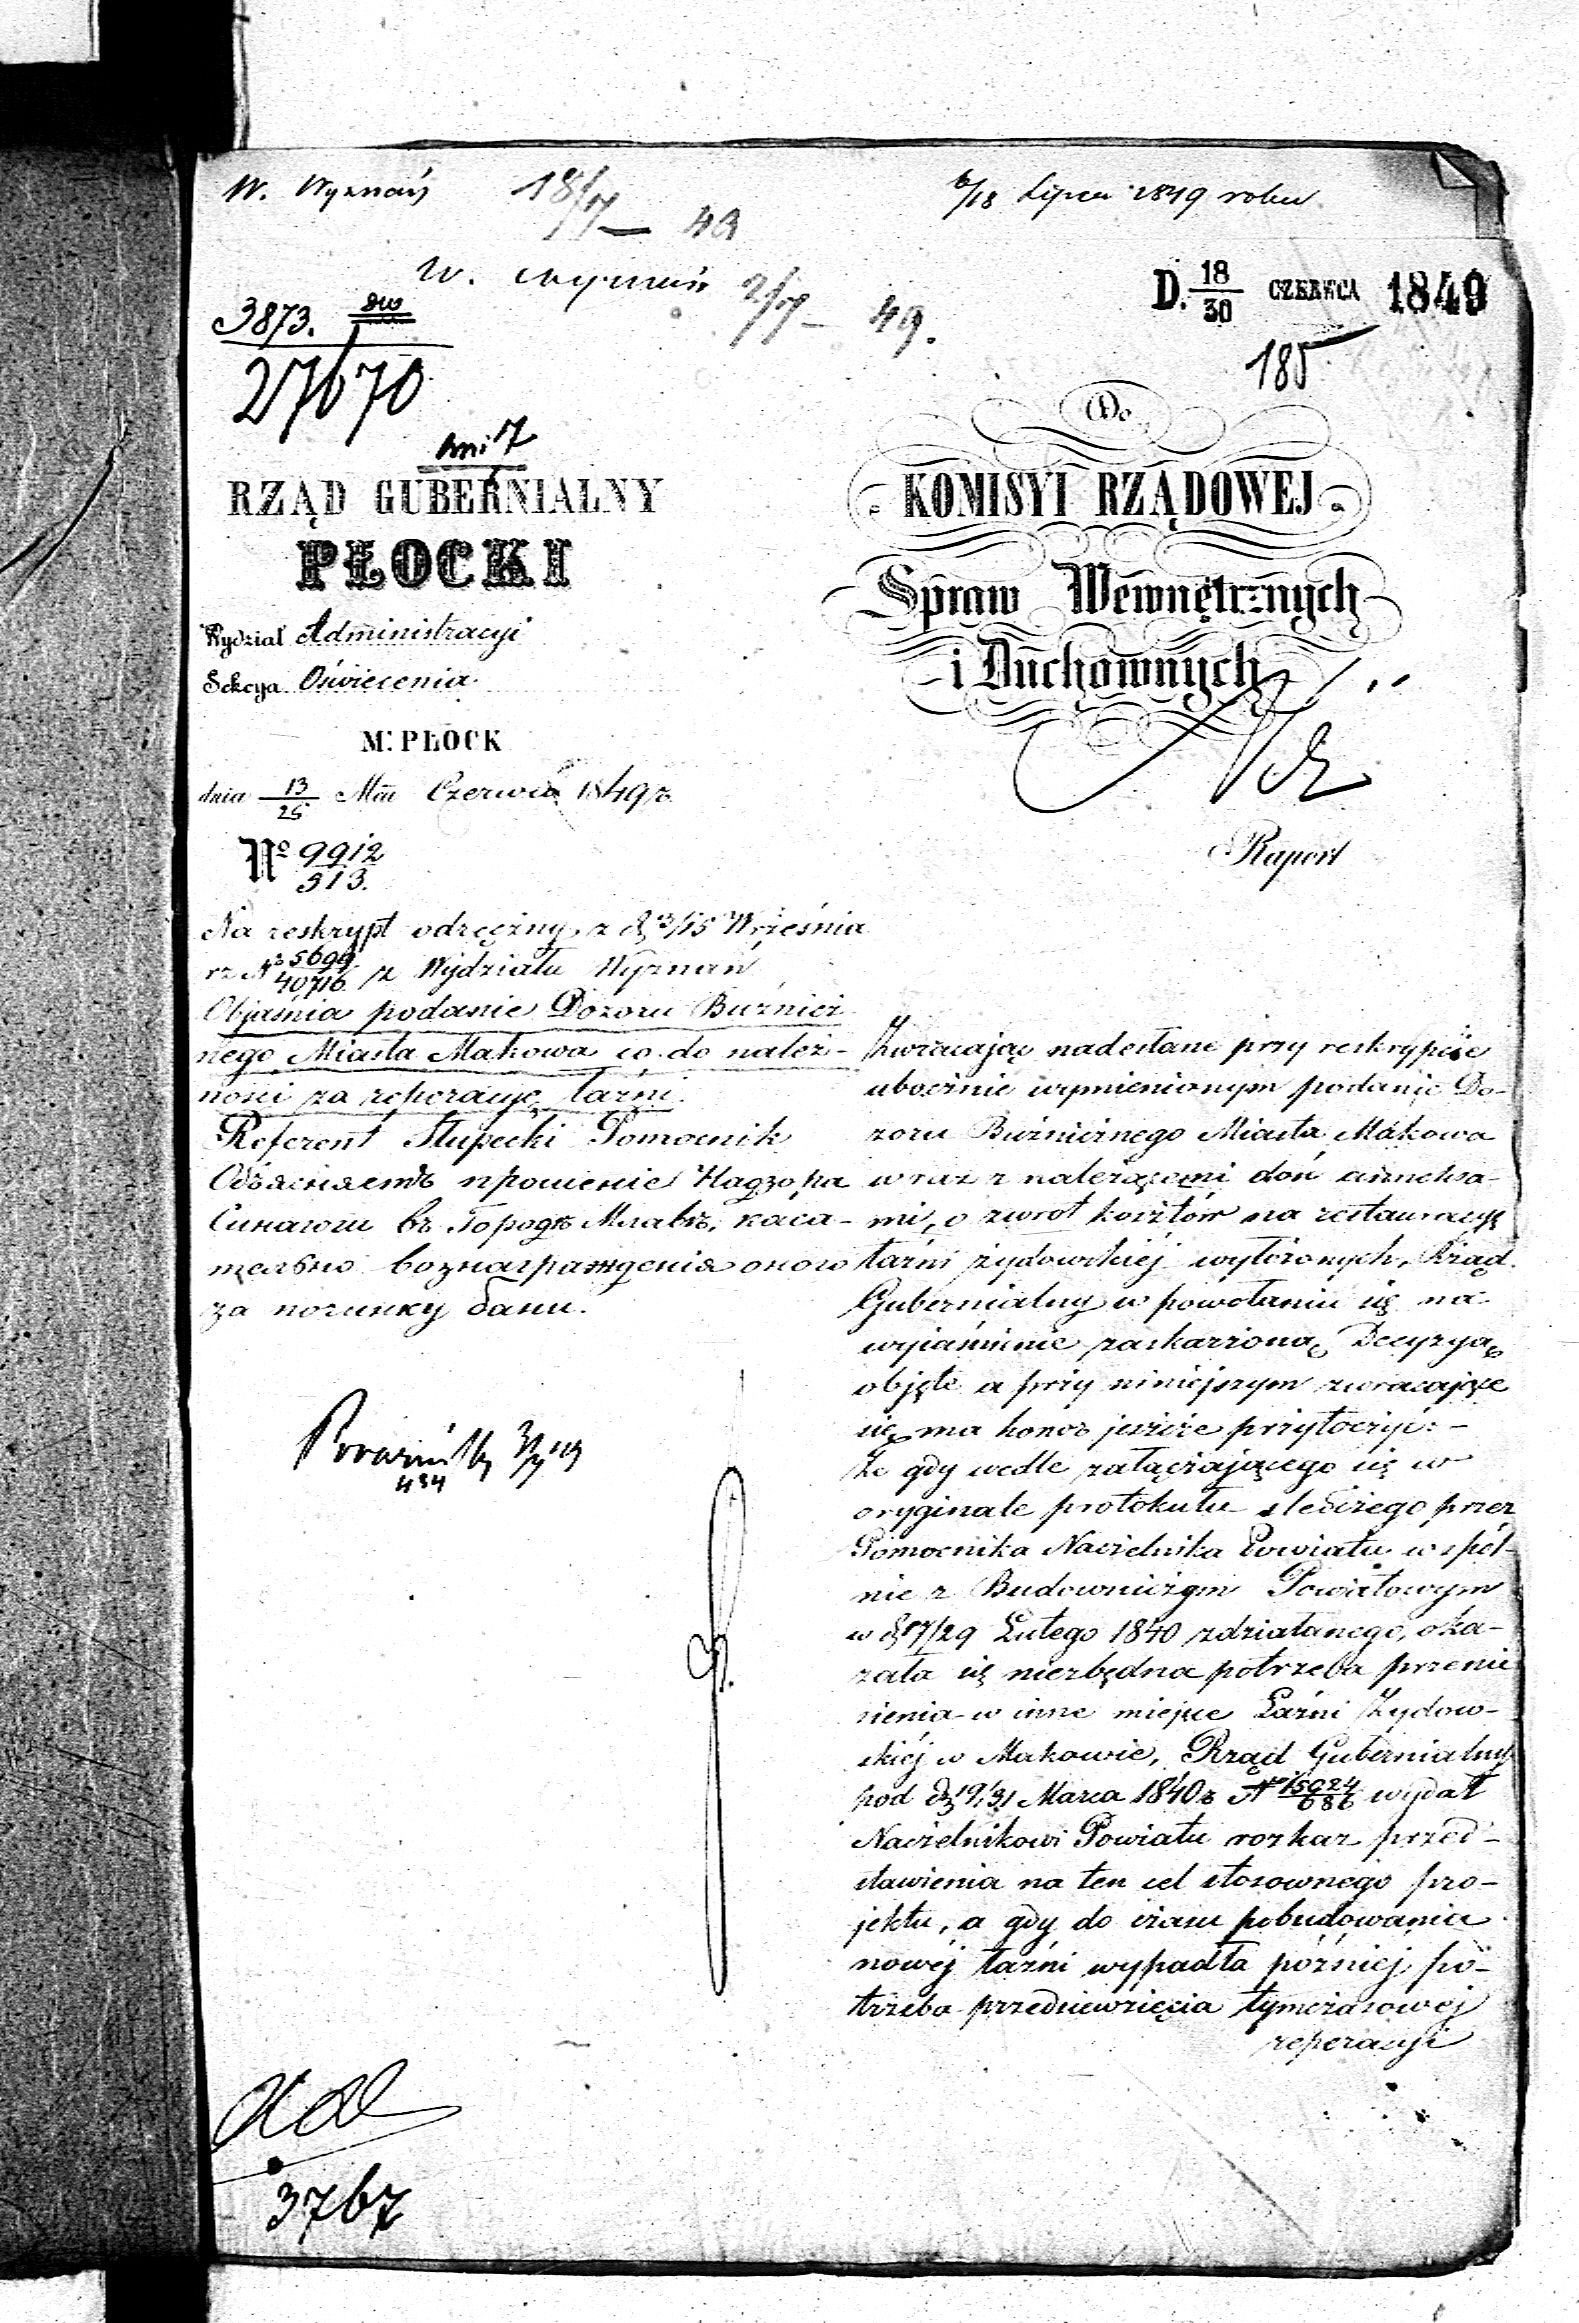 W. Wyznań 18/7 – 49
6/18 Lipca 1849 roku
W. Wyznań 2/7 – 49.
D. 18/30 CZERWCA 1849
185
3873.
27670
dni 7
RZĄD GUBERNIALNY
PŁOCKI
Wydział Administracyi
Sekcya Oświecenia
M. PŁOCK
dnia 13/25 M͠ca Czerwca 1849 r.
Nº 9912/313.
Do
KOMISYI RZĄDOWEJ
Spraw Wewnętrznych
i Duchownych
Raport
Na reskrypt odręczny z d. 3/15 Września
rz Nº 5699/40716 z Wydziału Wyznań
Objaśnia podanie Dozoru Bużnicz
nego Miasta Makowa co do należ-
ności za reperacyę łaźni.
Referent Słupecki Pomocnik
Объясняетъ прошение Надзора
Синагоги въ Городѣ Млавѣ, каса-
тельно вознаграждения оного
за починку бани.
434
Zwracając nadesłane przy reskrypcie
ubocznie wymienionym podanie Do-
zoru Bużnicznego Miasta Makowa
wraz z należącemi doń anneksa-
mi, o zwrot kosztów na restauracyę
łaźni żydowskiej wyłożonych, Rząd
Gubernialny w powołaniu się na
wyjaśnienie zaskarżoną Decyzyą
objęte a przy niniejszym zwracające
się ma honor jeszcze przytoczyć: –
Że gdy wedle załączającego się w
oryginale protokułu śledczego przez
Pomocnika Naczelnika Powiatu wspól-
nie z Budowniczym Powiatowym
w d. 17/29 Lutego 1840 zdziałanego, oka-
zała się niezbędna potrzeba przenie
sienia w inne miejsce Łaźni Żydow-
skiéj w Makowie, Rząd Gubernialny
pod d. 19/31 Marca 1840 r. Nº 15024/686 wydał
Naczelnikowi Powiatu rozkaz przed-
stawienia na ten cel stosownego pro-
jektu, a gdy do czasu pobudowania
nowéj łaźni wypadła pózniej po-
trzeba przedsiewzięcia tymczasowej
reperacyi
3767